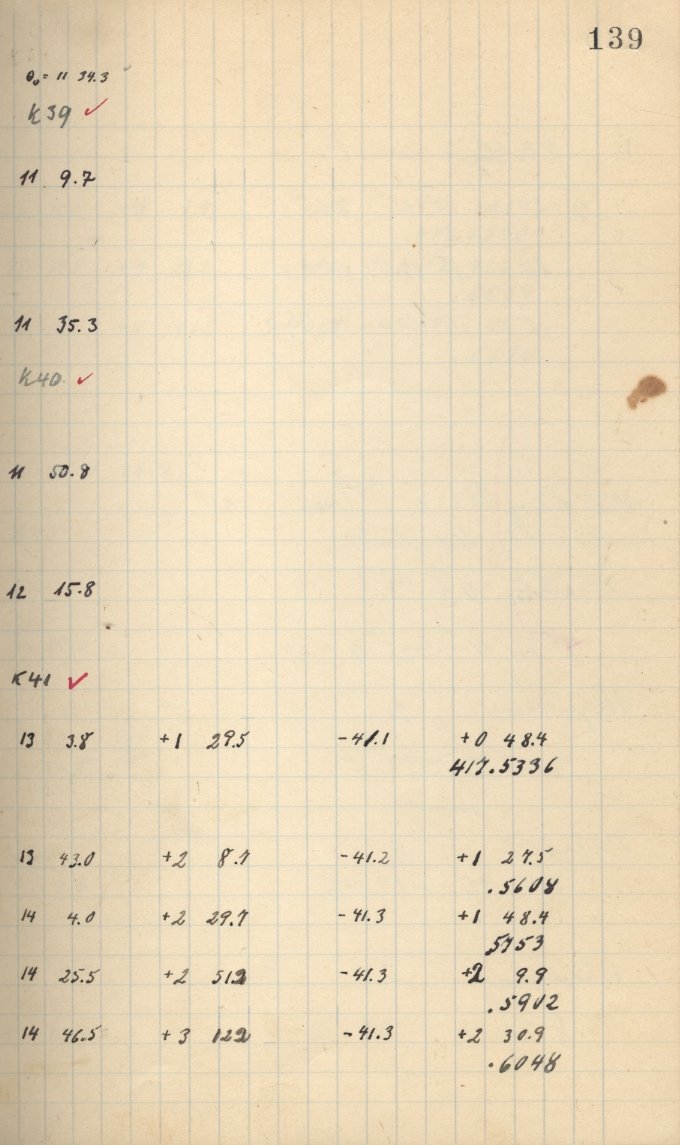 139
θ₀= 11 34.3
K39 ✓
11 9.7
11 35.3
K40 ✓
11 50.8
12 15.8
K41 ✓
13 3.8 +1 29.5 -41.1 +0 48.4
417.5336
13 43.0 +2 8.7 -41.2 +1 27.5
.5608
14 4.0 +2 29.7 -41.3 +1 48.4
.5753
14 25.5 +2 51.2 -41.3 +2 9.9
.5902
14 46.5 +3 12.2 -41.3 +2 30.9
.6048